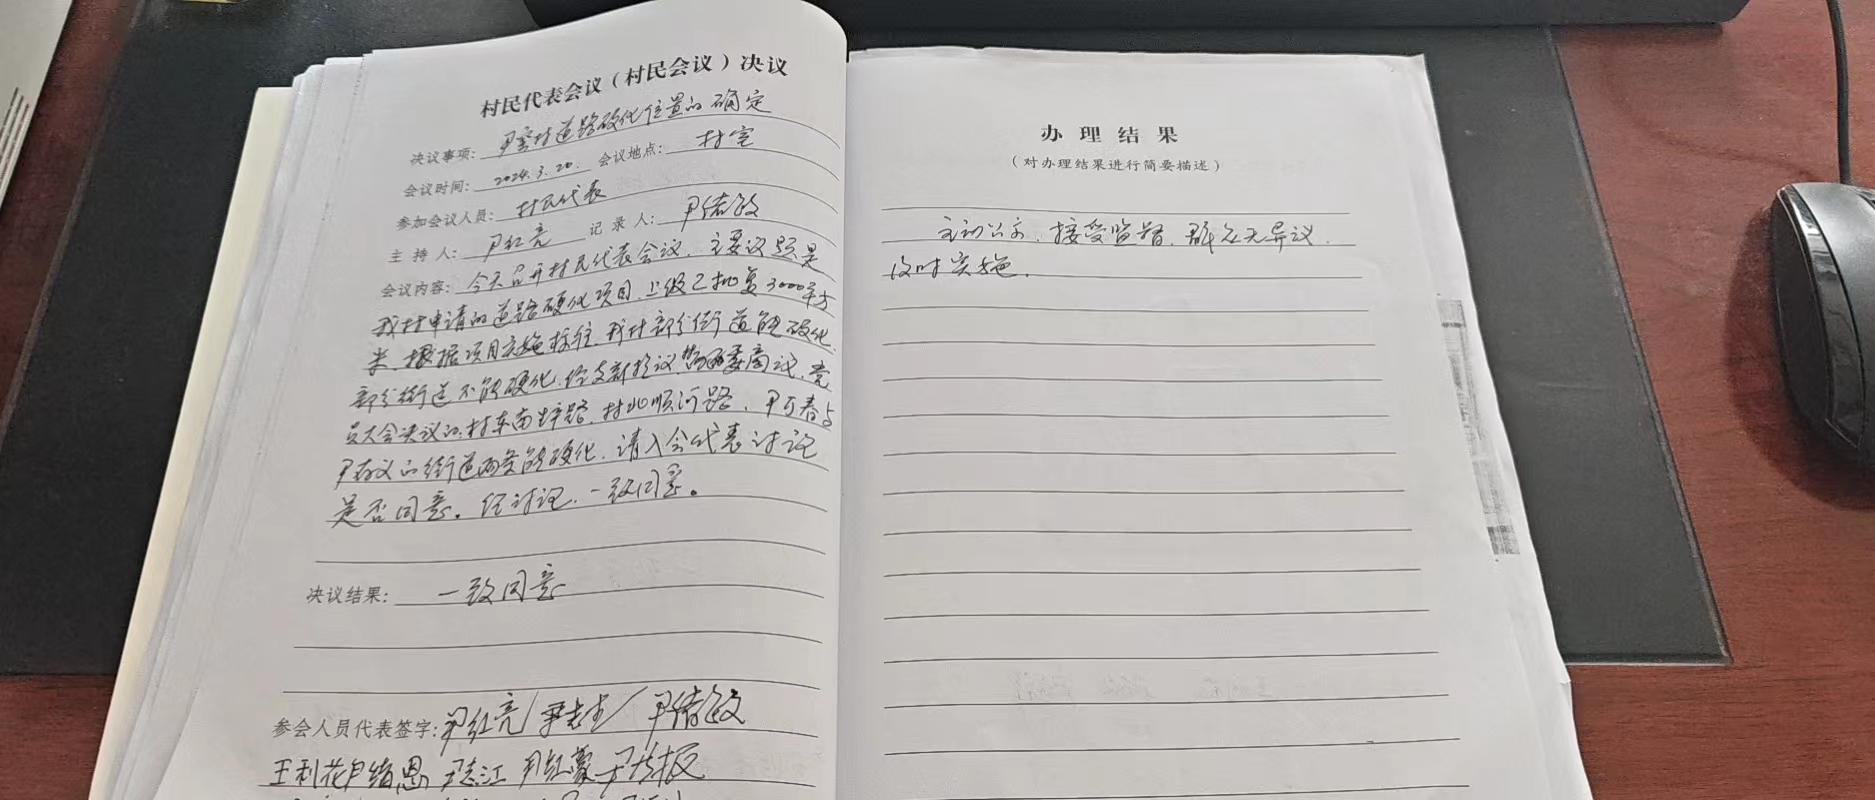 村民代表会议（村民会议）决议
决议事项：尹 村道路硬化位置的确定
会议时间：2024.3.20. 会议地点：村室
参加会议人员：村民代表
主持人：尹红亮 记录人：尹绪敏
会议内容：今天召开村民代表会议，主要议题是
我村申请的道路硬化项目，上级已批复3000平方
米，根据项目实施标准，我村部分街道能硬化，
部分街道不能硬化，经支部提议，两委商议，党
员大会决议的，村东南 路，村北顺河路，尹 春与
尹存义的街道两条能硬化，请入会代表讨论
是否同意。经讨论，一致同意。
决议结果：一致同意
参会人员代表签字：尹红亮 尹绪敏
王利花 尹绪恩 尹志江 尹红蒙 尹 振
办理结果
（对办理结果进行简要描述）
主动公示，接受监督，群众无异议，
及时实施。